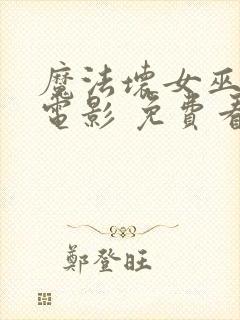 魔法壞女巫
電影 免費看
鄭登旺